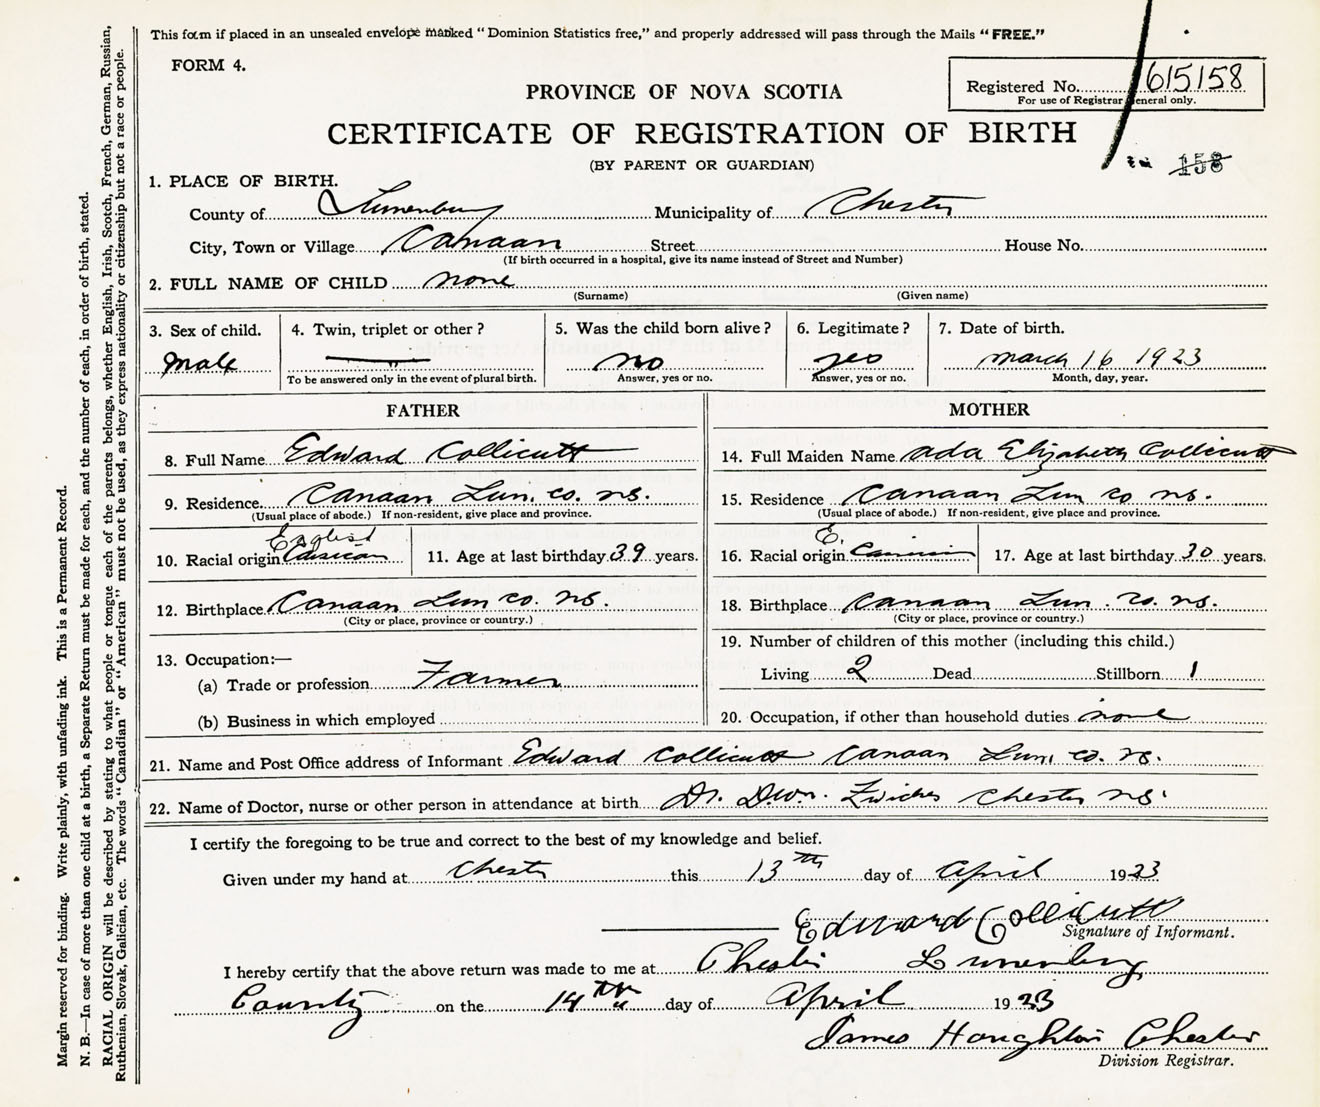 This form if placed in an unsealed envelope marked "Dominion Statistics free," and properly addressed will pass through the Mails "FREE."
FORM 4.
Registered No. 615158
For use of Registrar General only.
PROVINCE OF NOVA SCOTIA
CERTIFICATE OF REGISTRATION OF BIRTH
(BY PARENT OR GUARDIAN)
158
1. PLACE OF BIRTH.
County of Lunenburg Municipality of Chester
City, Town or Village Canaan Street House No.
(If birth occurred in a hospital, give its name instead of Street and Number)
2. FULL NAME OF CHILD none
(Surname) (Given name)
3. Sex of child. 4. Twin, triplet or other? 5. Was the child born alive? 6. Legitimate? 7. Date of birth.
Male no yes March 16 1923
To be answered only in the event of plural birth. Answer, yes or no. Answer, yes or no. Month, day, year.
FATHER MOTHER
8. Full Name Edward Collicutt 14. Full Maiden Name Ada Elizabeth Collicutt
9. Residence Canaan Lun. co. ns. 15. Residence Canaan Lun co ns.
(Usual place of abode.) If non-resident, give place and province. (Usual place of abode.) If non-resident, give place and province.
English E.
10. Racial origin 11. Age at last birthday 39 years. 16. Racial origin 17. Age at last birthday 30 years.
12. Birthplace Canaan Lun co. ns. 18. Birthplace Canaan Lun. co. ns.
(City or place, province or country.) (City or place, province or country.)
13. Occupation:— 19. Number of children of this mother (including this child.)
(a) Trade or profession Farmer Living 2 Dead Stillborn 1
(b) Business in which employed 20. Occupation, if other than household duties none
21. Name and Post Office address of Informant Edward Collicutt Canaan Lun. co. ns.
22. Name of Doctor, nurse or other person in attendance at birth Dr. Zwicker Chester ns.
I certify the foregoing to be true and correct to the best of my knowledge and belief.
Given under my hand at Chester this 13th day of April 1923
Edward Collicutt
Signature of Informant.
I hereby certify that the above return was made to me at Chester Lunenburg
County on the 14th day of April 1923
James Houghton Chester
Division Registrar.
Margin reserved for binding. Write plainly, with unfading ink. This is a Permanent Record.
N. B.—In case of more than one child at a birth, a Separate Return must be made for each, and the number of each, in order of birth, stated.
RACIAL ORIGIN will be described by stating to what people or tongue each of the parents belongs, whether English, Irish, Scotch, French, German, Russian,
Ruthenian, Slovak, Galician, etc. The words "Canadian" or "American" must not be used, as they express nationality or citizenship but not a race or people.